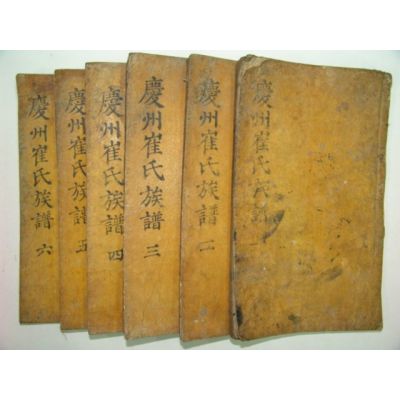 慶州崔氏族譜 六
慶州崔氏族譜 五
慶州崔氏族譜 四
慶州崔氏族譜 三
慶州崔氏族譜 二
慶州崔氏族譜